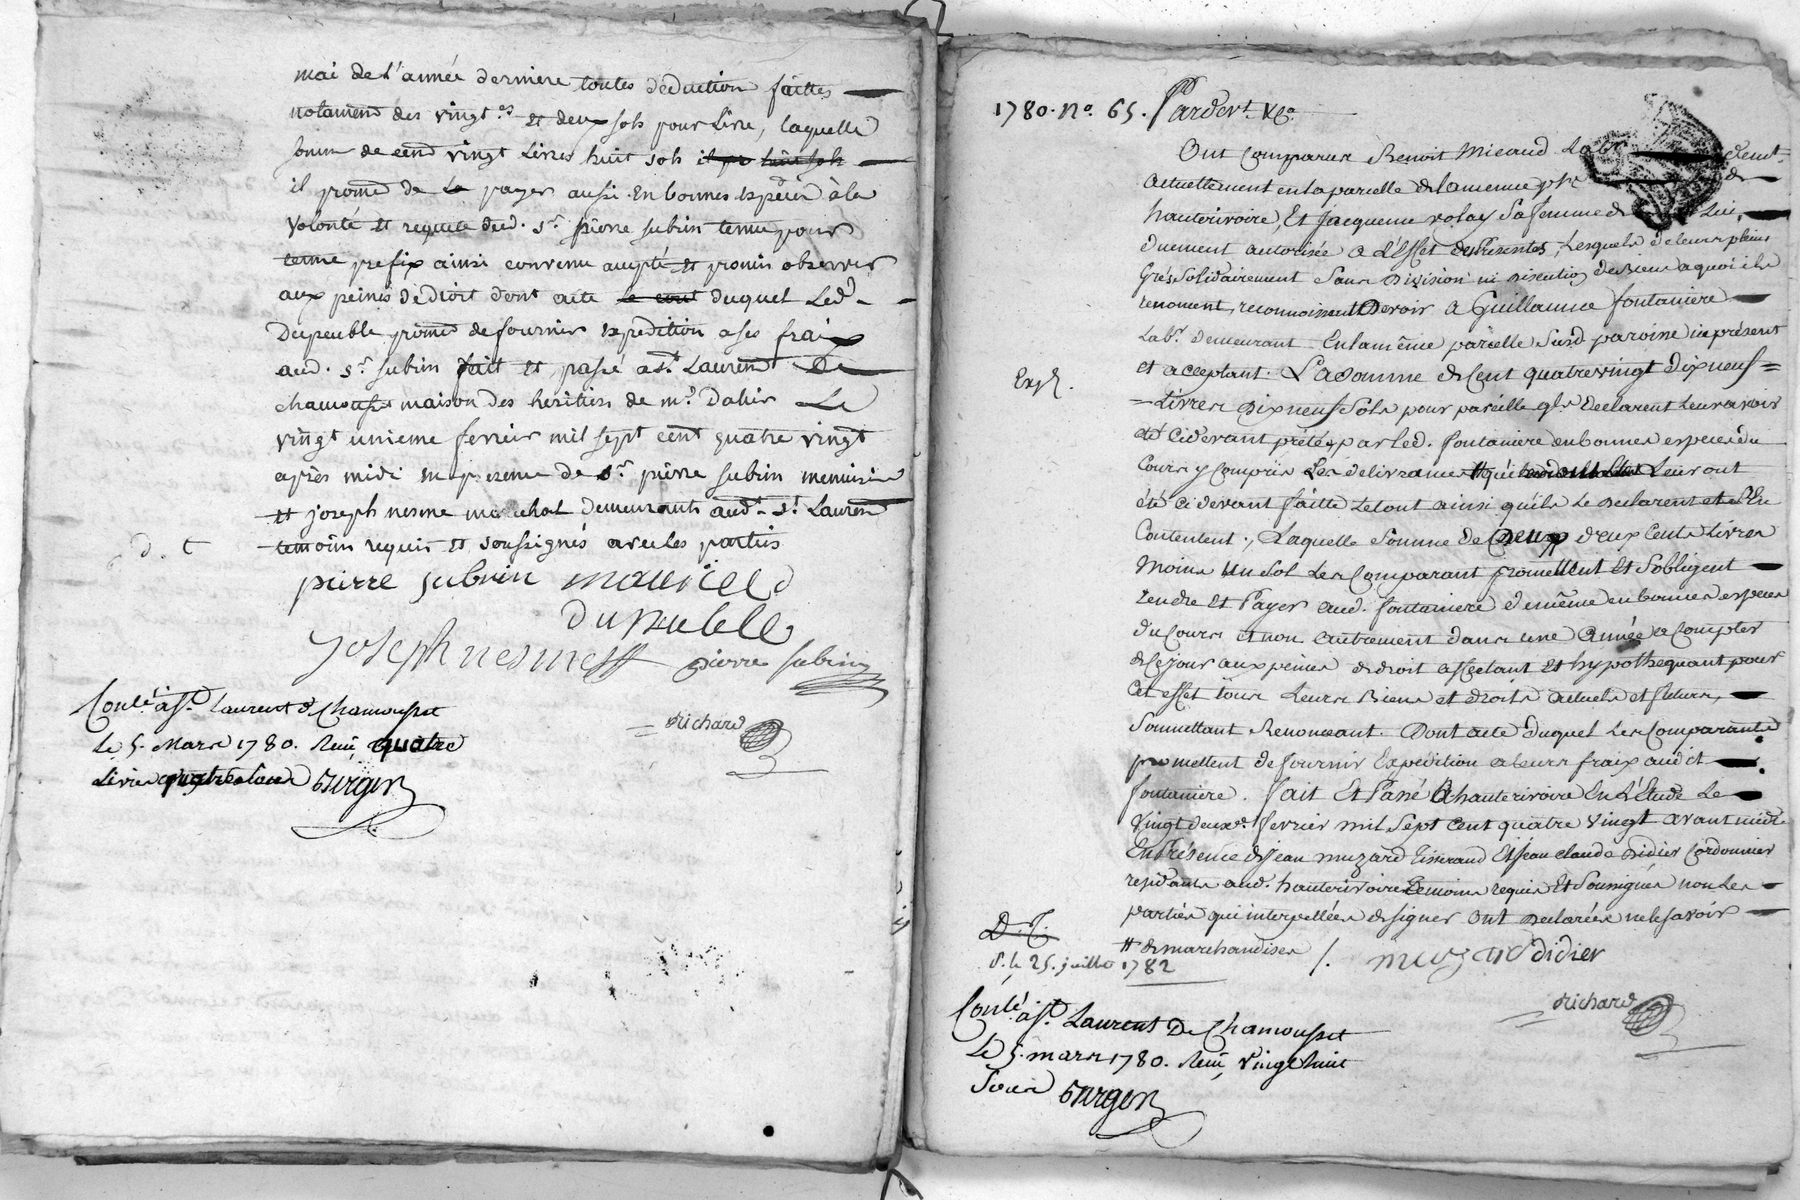 mai de l'année derniere toutes deduction faittes
notament des vingt.es et deux sols pour Livre, laquelle
somm de cend vingt Livres huit sols
il promd de la payer aussi en bonnes espeice à la
volonté et requete dud. Sr. pierre subrin terme pour
terme prefix ainsi convenu accepté et promis observer
aux peines de droit dont acte duquel Led.
Dupeuble promd de fournir expedition a ses fraix
aud. Sr. subrin fait et passé a St. Laurend De
chamousse maison des heritiers de me. Dalier Le
vingt unieme fevrier mil sept cent quatre vingt
après midi en presence de Sr. pierre subrin menuisier
et joseph nesme marechal demeurants aud. St. Laurend
temoins requis et soussignés avec les parties
d. C
pierre subrin mauriced
dupeuble
Joseph nesme pierre subrin
Conlé. à St. Laurent d Chamousset
Le 5. Mars 1780. Reçu quatre
Livres quatre sous
Richard
1780. No. 65. Pardevt. &c.
Ont comparus Benoit Micaud Labr. demt.
actuellement en la parcelle de la menue de
hauterivoire, Et Jacqueme volay Sa femme de Lui
duement autorisée a L'Effet des Présentes, Lesquels de leurs pleins
Grés solidairement Sans Division ni Discution de Biens a quoi ils
renoncent, reconnoissent Devoir a Guillaume fontaniere
Labr. demeurant En la même parcelle Susd. paroisse ici présent
et acceptant. La Somme de Cent quatre vingt dix neuf
Exp.
Livres Dix neuf Sols pour pareille qls Declarent Leur avoir
été Cidevant prétée par led. fontaniere en bonnes especes du
Cours y Compris Les delivrances # qui Leur ont
été Cidevant faitte Le tout ainsi quils Le Declarent et S'En
Contentent; Laquelle Somme de deux Cents Livres
Moins Un Sol Les Comparant promettent Et S'obligent
rendre Et Payer aud. fontaniere de même en bonnes especes
du Cours et non autrement dans une année a Compter
de Ce jour aux peines de droit affectant Et hypothequant pour
Cet effet tous Leurs Biens et droits actuels et futurs,
Soumettant Renoncant. Dont acte duquel Les Comparants
promettent de fournir Expedition a leurs fraix audit
fontaniere. fait Et Passé A hauterivoire En L'Etude Le
Vingt deuxe. fevrier mil Sept Cent quatre Vingt avant midi
En Présence de Jean muzard Tisserand Et Jean claude Didier Cordonnier
residants aud. hauterivoire Temoins requis Et Soussignés non Les
parties qui interpellées de signer Ont Declarées ne le savoir
D. C.
# de marchandises /. muzard didier
d. le 25. juillet 1782
Richard
Conlé. à St. Laurent De Chamousset
Le 5. mars 1780. Reçu, Vingt huit
Sous